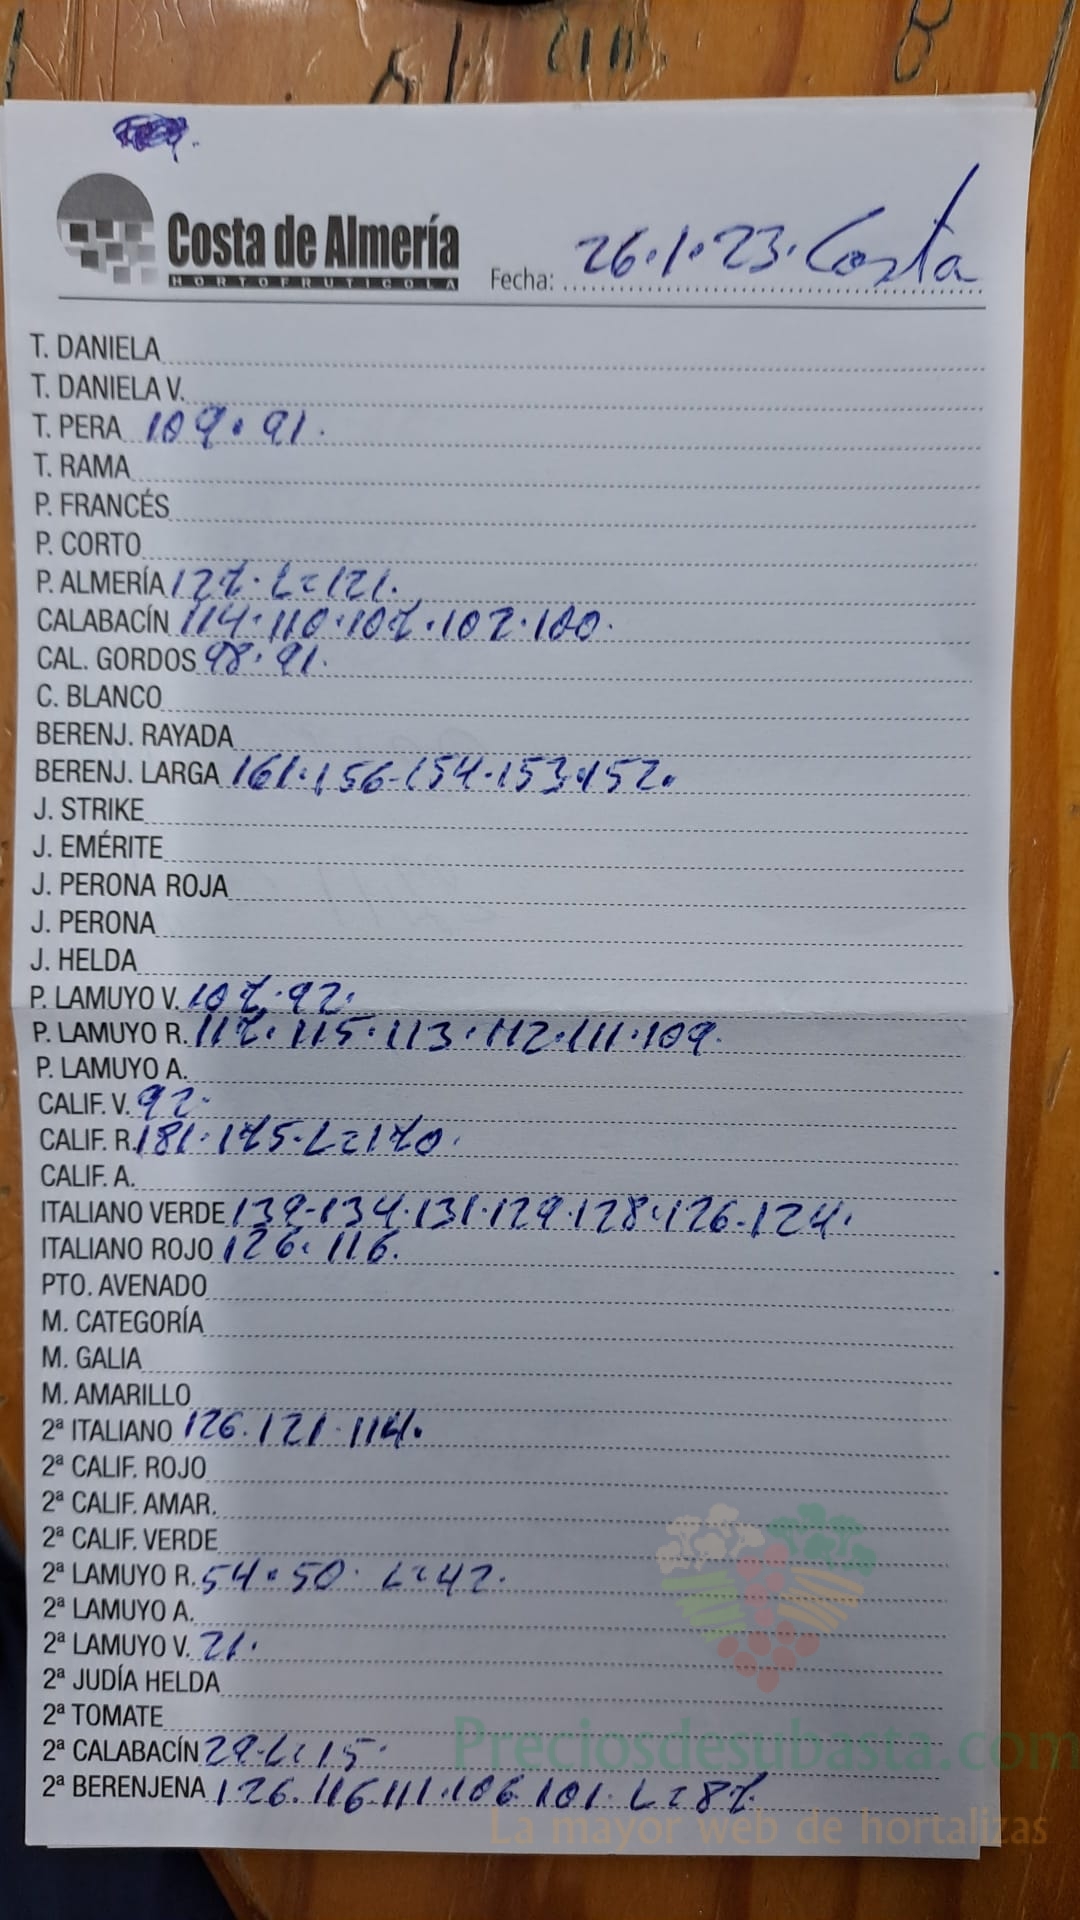 Costa de Almería
HORTOFRUTICOLA
Fecha: 26.1.23. Costa
T. DANIELA
T. DANIELA V.
T. PERA 109. 91.
T. RAMA
P. FRANCÉS
P. CORTO
P. ALMERÍA 127. L=121.
CALABACÍN 114.110.107.102.100.
CAL. GORDOS 98. 91.
C. BLANCO
BERENJ. RAYADA
BERENJ. LARGA 161.156-154.153.152.
J. STRIKE
J. EMÉRITE
J. PERONA ROJA
J. PERONA
J. HELDA
P. LAMUYO V. 107.92.
P. LAMUYO R. 117. 115. 113. 112.111.109.
P. LAMUYO A.
CALIF. V. 92.
CALIF. R. 181. 175. L=170.
CALIF. A.
ITALIANO VERDE 139-134.131.129.128.126-124.
ITALIANO ROJO 126. 116.
PTO. AVENADO
M. CATEGORÍA
M. GALIA
M. AMARILLO
2ª ITALIANO 126.121.114.
2ª CALIF. ROJO
2ª CALIF. AMAR.
2ª CALIF. VERDE
2ª LAMUYO R. 54.50. L=42.
2ª LAMUYO A.
2ª LAMUYO V. 21.
2ª JUDÍA HELDA
2ª TOMATE
2ª CALABACÍN 29-L=15.
2ª BERENJENA 126.116.111.106.101. L=87
Preciosdesubasta.com
La mayor web de hortalizas